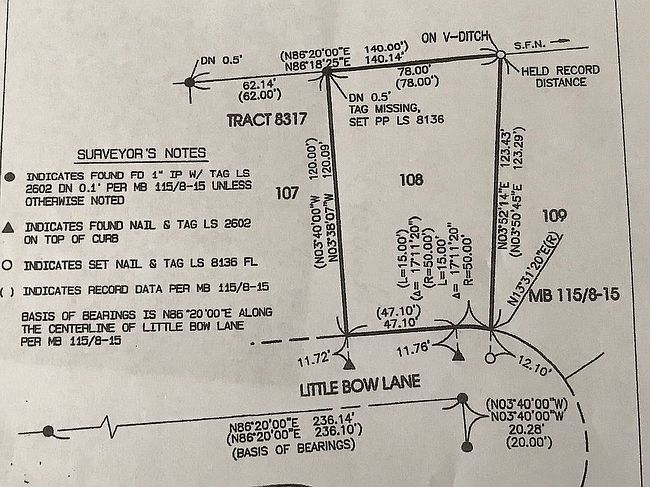 ON V-DITCH
S.F.N.
DN 0.5'
(N86°20'00"E 140.00')
N86°18'25"E 140.14'
62.14'
(62.00')
78.00'
(78.00')
HELD RECORD
DISTANCE
DN 0.5'
TAG MISSING,
SET PP LS 8136
TRACT 8317
SURVEYOR'S NOTES
INDICATES FOUND FD 1" IP W/ TAG LS
2602 DN 0.1' PER MB 115/8-15 UNLESS
OTHERWISE NOTED
INDICATES FOUND NAIL & TAG LS 2602
ON TOP OF CURB
INDICATES SET NAIL & TAG LS 8136 FL
( ) INDICATES RECORD DATA PER MB 115/8-15
BASIS OF BEARINGS IS N86°20'00"E ALONG
THE CENTERLINE OF LITTLE BOW LANE
PER MB 115/8-15
107
(N03°40'00"W 120.00')
N03°38'07"W 120.09'
108
(L=15.00')
(Δ= 17°11'20")
(R=50.00')
L=15.00'
Δ= 17°11'20"
R=50.00'
N03°52'14"E 123.43'
(N03°50'45"E 123.29')
109
N13°31'20"E(R)
MB 115/8-15
(47.10')
47.10'
11.72'
11.76'
12.10'
LITTLE BOW LANE
N86°20'00"E 236.14'
(N86°20'00"E 236.10')
(BASIS OF BEARINGS)
(N03°40'00"W)
N03°40'00"W
20.28'
(20.00')